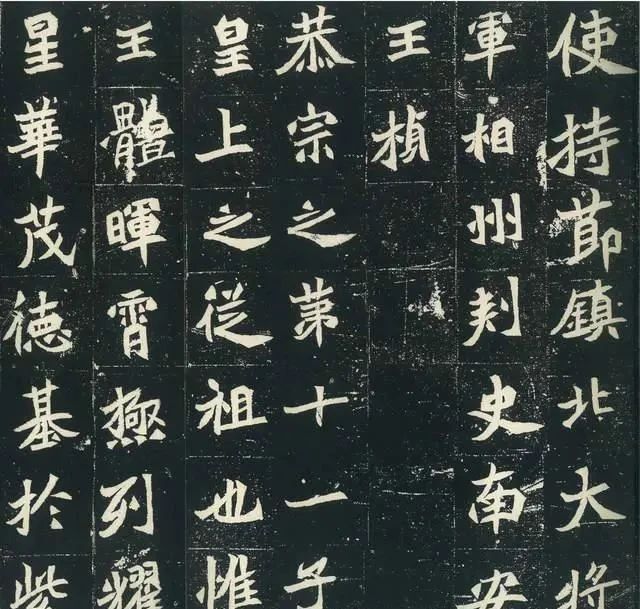 使持節鎮北大將
軍相州刺史南安
王楨
恭宗之第十一子
皇上之從祖也惟
王體暉霄極列耀
星華茂德基於紫